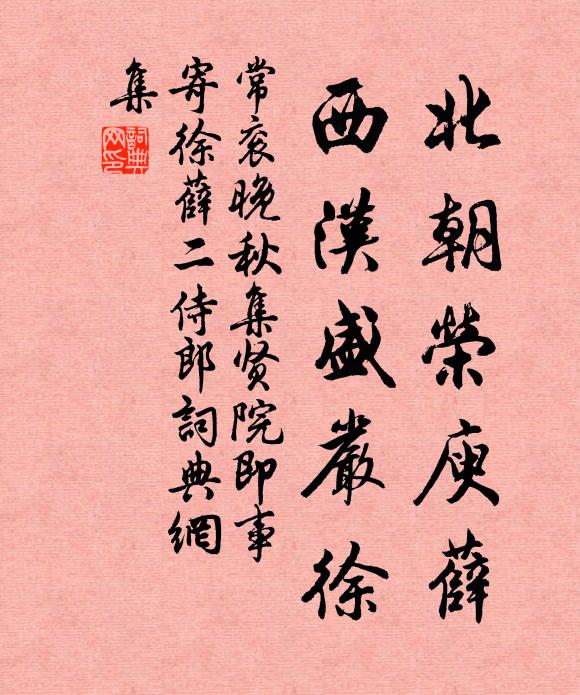 北朝榮庾薛
西漢盛嚴徐
常衮晚秋集贤院即事
寄徐薛二侍郎詞典網
集
詞典網印